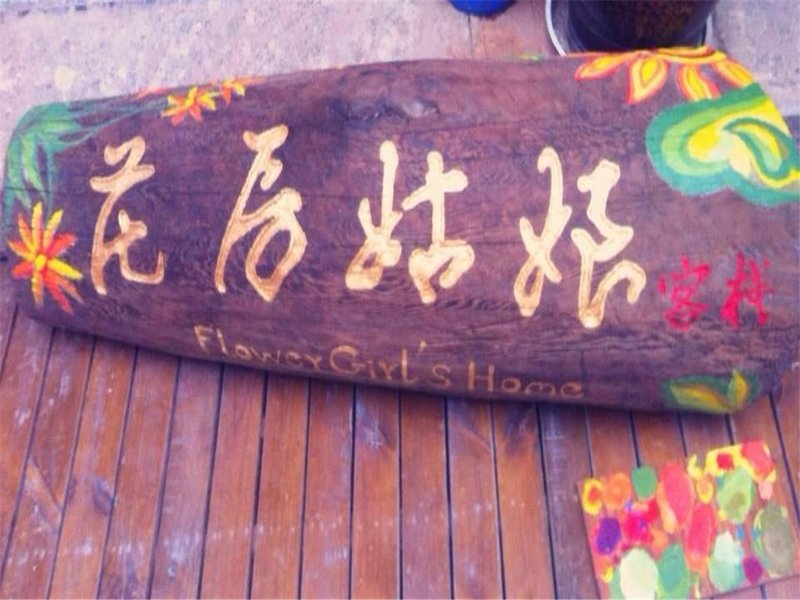 花房姑娘
客栈
Flower Girl's Home